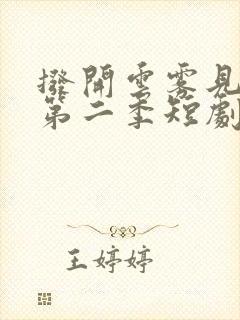 撥開雲霧見
第二季短劇
王婷婷